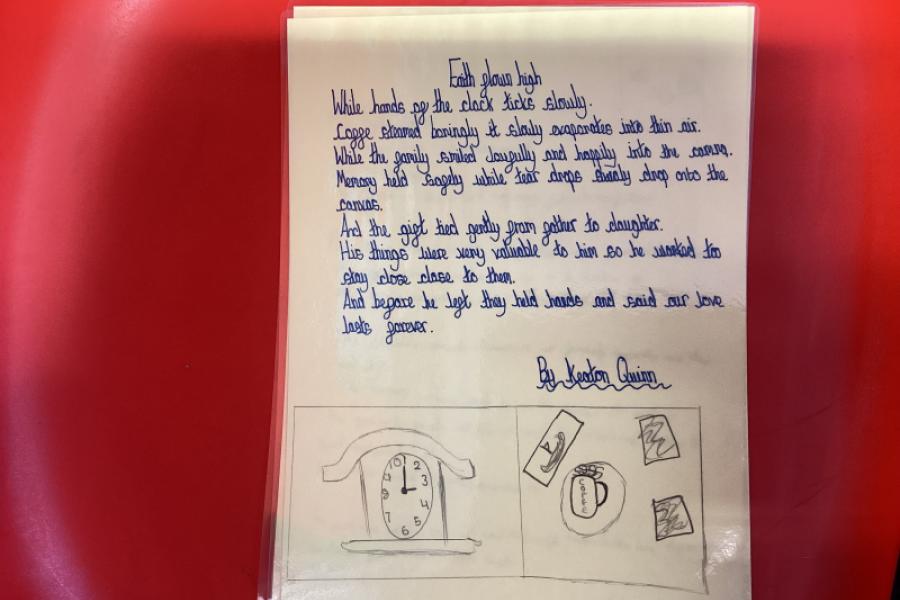 Faith flown high
While hands of the clock ticks slowly.
Coffee steamed boringly it slowly evaporates into thin air.
While the family smiled joyfully and happily into the camra.
Memory held safely while tear drops slowly drop onto the
canvas.
And the gift tied gently from father to daughter.
His things were very valuable to him so he worked too
stay close close to them.
And before he left they held hands and said our love
lasts forever.
By Keaton Quinn
10 2
3
4
5
6
7